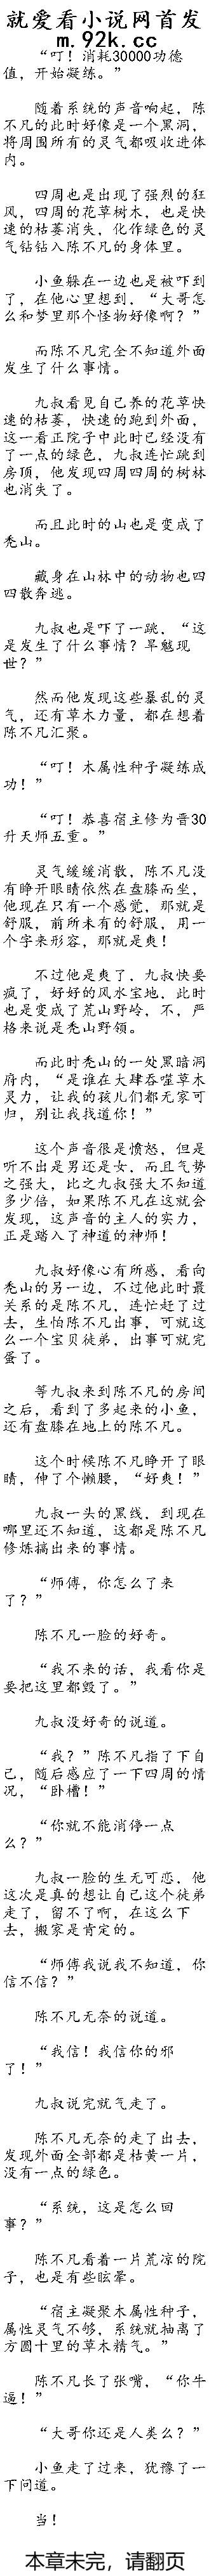 就爱看小说网首发
m.92k.cc
“叮！消耗30000功德
值，开始凝练。”
随着系统的声音响起，陈
不凡的此时好像是一个黑洞，
将周围所有的灵气都吸收进体
内。
四周也是出现了强烈的狂
风，四周的花草树木，也是快
速的枯萎消失，化作绿色的灵
气钻钻入陈不凡的身体里。
小鱼躲在一边也是被吓到
了，在他心里想到，“大哥怎
么和梦里那个怪物好像啊？”
而陈不凡完全不知道外面
发生了什么事情。
九叔看见自己养的花草快
速的枯萎，快速的跑到外面，
这一看正院子中此时已经没有
了一点的绿色，九叔连忙跳到
房顶，他发现四周四周的树林
也消失了。
而且此时的山也是变成了
秃山。
藏身在山林中的动物也四
四散奔逃。
九叔也是吓了一跳，“这
是发生了什么事情？旱魃现
世？”
然而他发现这些暴乱的灵
气，还有草木力量，都在想着
陈不凡汇聚。
“叮！木属性种子凝练成
功！”
“叮！恭喜宿主修为晋30
升天师五重。”
灵气缓缓消散，陈不凡没
有睁开眼睛依然在盘膝而坐，
他现在只有一个感觉，那就是
舒服，前所未有的舒服，用一
个字来形容，那就是爽！
不过他是爽了，九叔快要
疯了，好好的风水宝地，此时
也是变成了荒山野岭，不，严
格来说是秃山野领。
而此时秃山的一处黑暗洞
府内，“是谁在大肆吞噬草木
灵力，让我的孩儿们都无家可
归，别让我找道你！”
这个声音很是愤怒，但是
听不出是男还是女，而且气势
之强大，比之九叔强大不知道
多少倍，如果陈不凡在这就会
发现，这声音的主人的实力，
正是踏入了神道的神师！
九叔好像心有所感，看向
秃山的另一边，不过他此时最
关系的是陈不凡，连忙赶了过
去，生怕陈不凡出事，可就这
么一个宝贝徒弟，出事可就完
蛋了。
等九叔来到陈不凡的房间
之后，看到了多起来的小鱼，
还有盘膝在地上的陈不凡。
这个时候陈不凡睁开了眼
睛，伸了个懒腰，“好爽！”
九叔一头的黑线，到现在
哪里还不知道，这都是陈不凡
修炼搞出来的事情。
“师傅，你怎么了来
了？”
陈不凡一脸的好奇。
“我不来的话，我看你是
要把这里都毁了。”
九叔没好奇的说道。
“我？”陈不凡指了下自
己，随后感应了一下四周的情
况，“卧槽！”
“你就不能消停一点
么？”
九叔一脸的生无可恋，他
这次是真的想让自己这个徒弟
走了，留不了啊，在这么下
去，搬家是肯定的。
“师傅我说我不知道，你
信不信？”
陈不凡无奈的说道。
“我信！我信你的邪
了！”
九叔说完就气走了。
陈不凡无奈的走了出去，
发现外面全部都是枯黄一片，
没有一点的绿色。
“系统，这是怎么回
事？”
陈不凡看着一片荒凉的院
子，也是有些眩晕。
“宿主凝聚木属性种子，
属性灵气不够，系统就抽离了
方圆十里的草木精气。”
陈不凡长了张嘴，“你牛
逼！”
“大哥你还是人类么？”
小鱼走了过来，犹豫了一
下问道。
当！
本章未完，请翻页